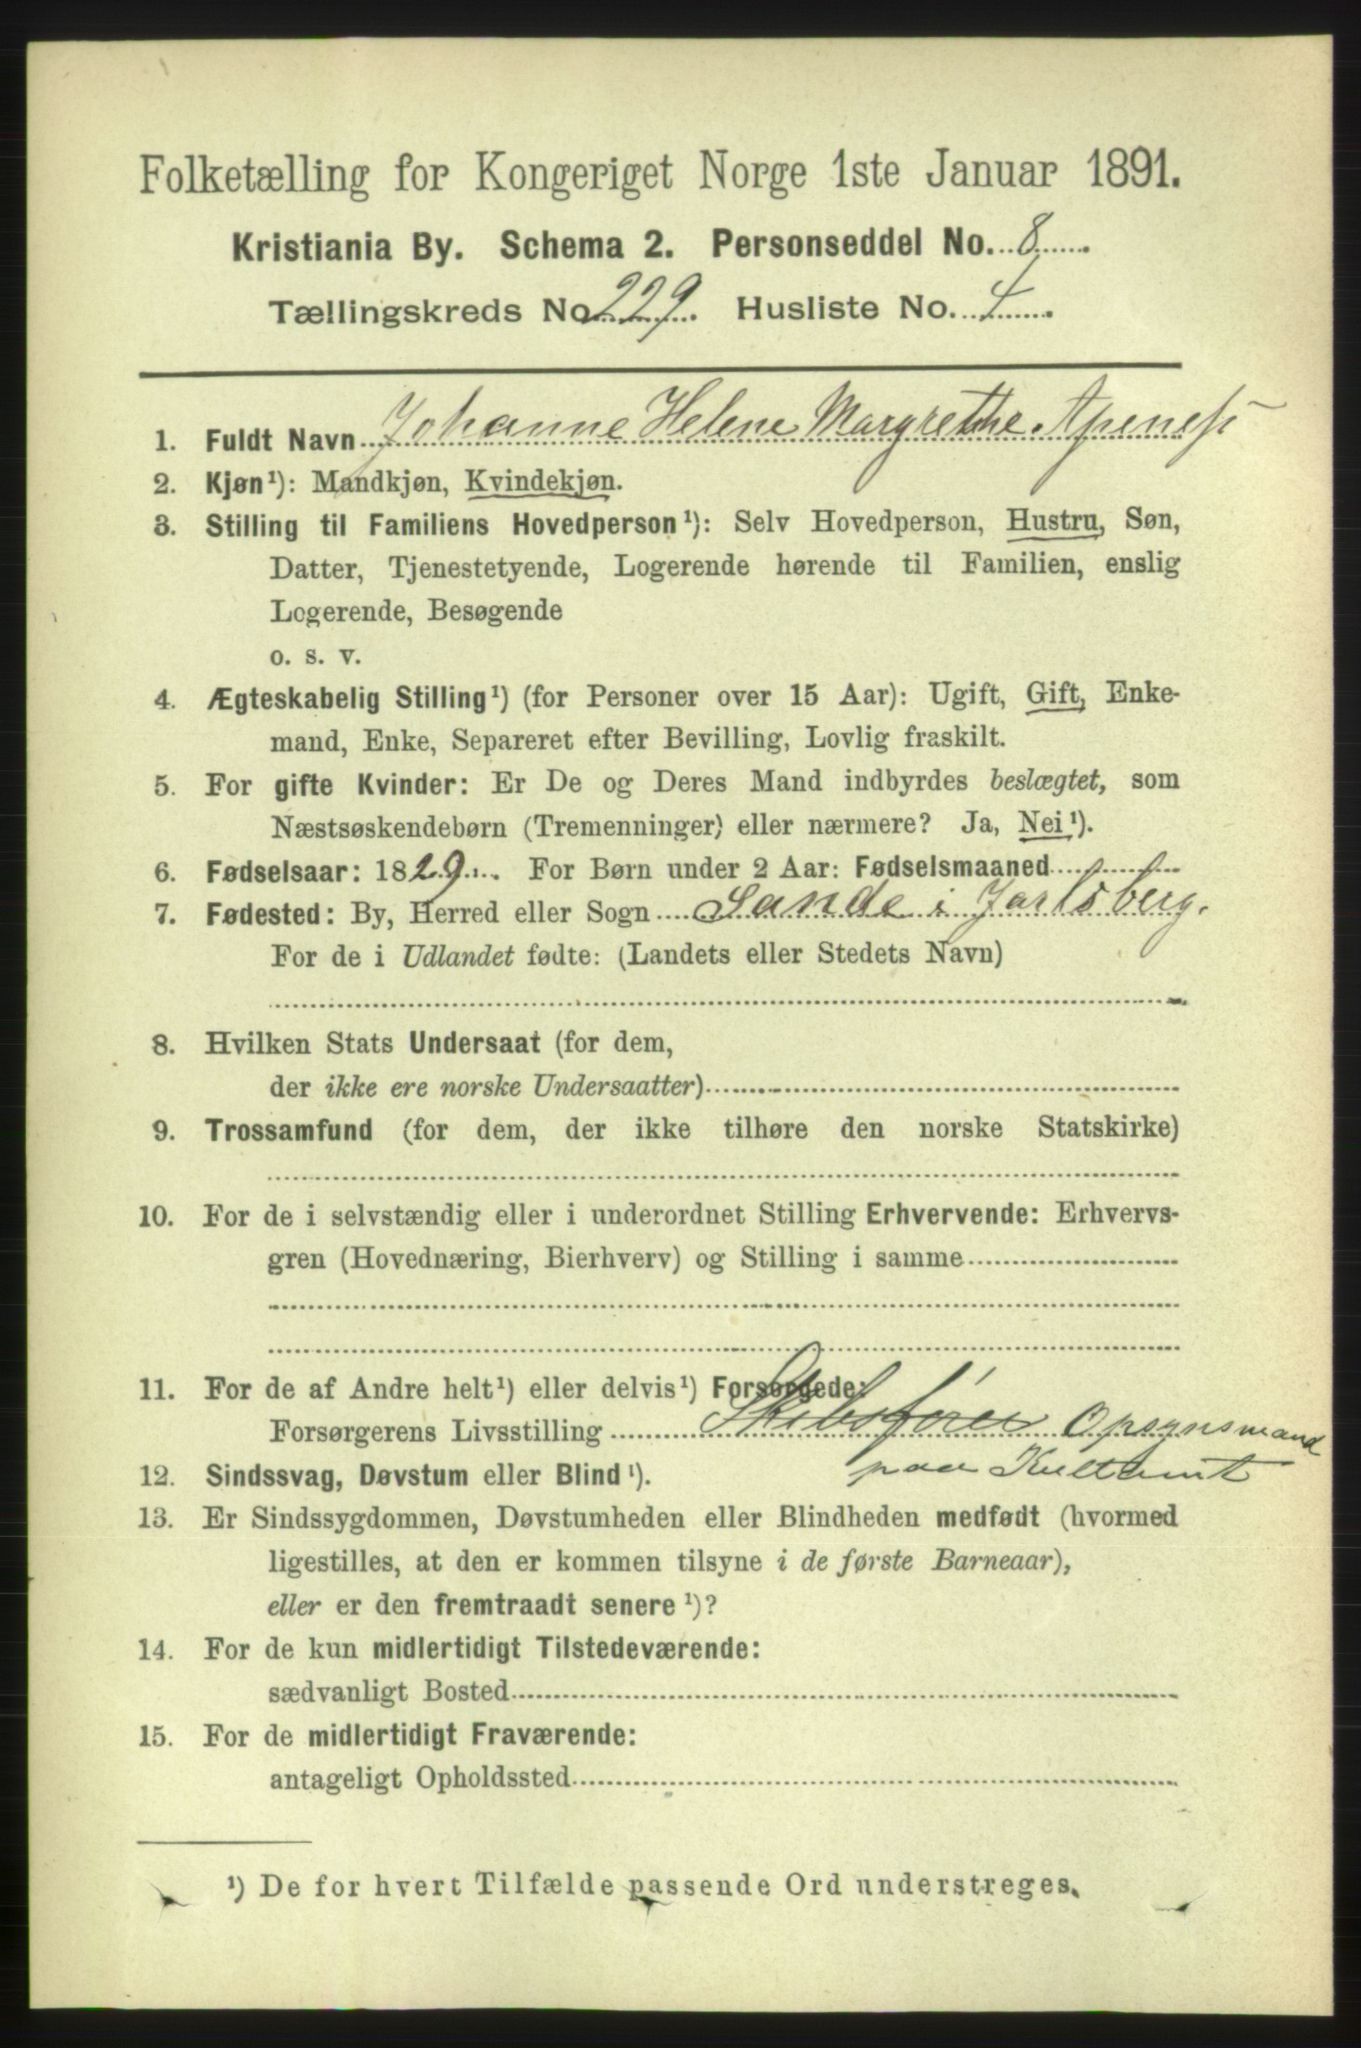 Folketælling for Kongeriget Norge 1ste Januar 1891.
Kristiania By. Schema 2. Personseddel No. 8
Tællingskreds No. 229. Husliste No. 4
1. Fuldt Navn Johanne Helene Margrethe Apeness
2. Kjøn¹): Mandkjøn, Kvindekjøn.
3. Stilling til Familiens Hovedperson¹): Selv Hovedperson, Hustru, Søn,
Datter, Tjenestetyende, Logerende hørende til Familien, enslig
Logerende, Besøgende
o. s. v.
4. Ægteskabelig Stilling¹) (for Personer over 15 Aar): Ugift, Gift, Enke-
mand, Enke, Separeret efter Bevilling, Lovlig fraskilt.
5. For gifte Kvinder: Er De og Deres Mand indbyrdes beslægtet, som
Næstsøskendebørn (Tremenninger) eller nærmere? Ja, Nei¹).
6. Fødselsaar: 1829. For Børn under 2 Aar: Fødselsmaaned
7. Fødested: By, Herred eller Sogn Sande i Jarlsberg.
For de i Udlandet fødte: (Landets eller Stedets Navn)
8. Hvilken Stats Undersaat (for dem,
der ikke ere norske Undersaatter)
9. Trossamfund (for dem, der ikke tilhøre den norske Statskirke)
10. For de i selvstændig eller i underordnet Stilling Erhvervende: Erhvervs-
gren (Hovednæring, Bierhverv) og Stilling i samme
11. For de af Andre helt¹) eller delvis¹) Forsørgede:
Forsørgerens Livsstilling Skibsfører Opsynsmand
12. Sindssvag, Døvstum eller Blind¹). paa
13. Er Sindssygdommen, Døvstumheden eller Blindheden medfødt (hvormed
ligestilles, at den er kommen tilsyne i de første Barneaar),
eller er den fremtraadt senere¹)?
14. For de kun midlertidigt Tilstedeværende:
sædvanligt Bosted
15. For de midlertidigt Fraværende:
antageligt Opholdssted
¹) De for hvert Tilfælde passende Ord understreges.